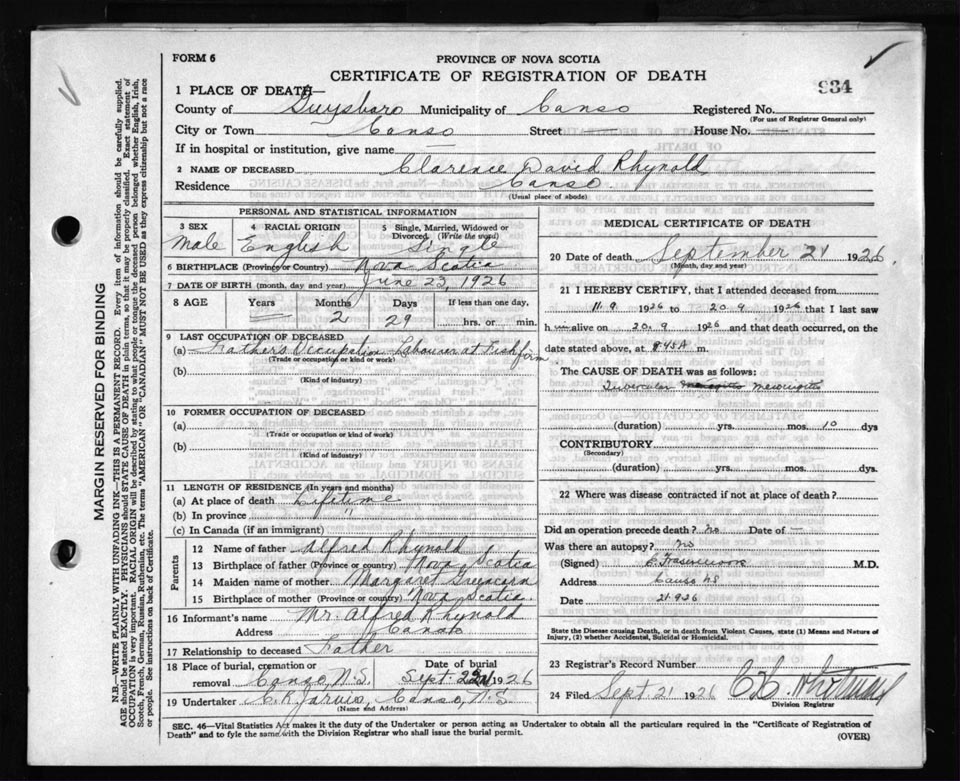 FORM 6
PROVINCE OF NOVA SCOTIA
CERTIFICATE OF REGISTRATION OF DEATH
934
1 PLACE OF DEATH—
County of Guysboro Municipality of Canso Registered No.
(For use of Registrar General only)
City or Town Canso Street House No. —
If in hospital or institution, give name —
2 NAME OF DECEASED Clarence David Rhynold
Residence Canso
(Usual place of abode)
PERSONAL AND STATISTICAL INFORMATION
3 SEX 4 RACIAL ORIGIN 5 Single, Married, Widowed or Divorced (Write the word)
Male English Single
6 BIRTHPLACE (Province or Country) Nova Scotia
7 DATE OF BIRTH (month, day and year) June 23, 1926
8 AGE Years Months Days If less than one day,
— 2 29 hrs. or min.
9 LAST OCCUPATION OF DECEASED
(a) Father's Occupation Labourer at Fish firm
(Trade or occupation or kind of work)
(b)
(Kind of industry)
10 FORMER OCCUPATION OF DECEASED
(a)
(Trade or occupation or kind of work)
(b)
(Kind of industry)
11 LENGTH OF RESIDENCE (In years and months)
(a) At place of death Lifetime
(b) In province "
(c) In Canada (if an immigrant)
Parents
12 Name of father Alfred Rhynold
13 Birthplace of father (Province or country) Nova Scotia
14 Maiden name of mother Margaret Greencorn
15 Birthplace of mother (Province or country) Nova Scotia.
16 Informant's name Mr. Alfred Rhynold
Address Canso
17 Relationship to deceased Father
18 Place of burial, cremation or removal Canso, N.S. Date of burial Sept. 22 1926
19 Undertaker C. R. Jarvis, Canso, N.S
(Name and Address)
MEDICAL CERTIFICATE OF DEATH
20 Date of death September 21 1926
(Month, day and year)
21 I HEREBY CERTIFY, that I attended deceased from
11.9 1926 to 20.9 1926 that I last saw
h im alive on 20.9 1926 and that death occurred, on the
date stated above, at 8.45 A m.
The CAUSE OF DEATH was as follows:
Tubercular Meningitis
(duration) yrs. mos. 10 dys
CONTRIBUTORY
(Secondary)
(duration) yrs. mos. dys.
22 Where was disease contracted if not at place of death?
Did an operation precede death? no Date of —
Was there an autopsy? no
(Signed) M.D.
Address Canso NS
Date 21.9.26
State the Disease causing Death, or in death from Violent Causes, state (1) Means and Nature of Injury, (2) whether Accidental, Suicidal or Homicidal.
23 Registrar's Record Number
24 Filed Sept 21 1926
Division Registrar
SEC. 46—Vital Statistics Act makes it the duty of the Undertaker or person acting as Undertaker to obtain all the particulars required in the "Certificate of Registration of
Death" and to fyle the same with the Division Registrar who shall issue the burial permit.
(OVER)
MARGIN RESERVED FOR BINDING
N.B.—WRITE PLAINLY WITH UNFADING INK—THIS IS A PERMANENT RECORD. Every item of information should be carefully supplied.
AGE should be stated EXACTLY. PHYSICIANS should STATE CAUSE OF DEATH in plain terms, so that it may be properly classified. Exact statement of
OCCUPATION is very important. RACIAL ORIGIN will be described by stating to what people or tongue the deceased person belonged whether English, Irish,
Scotch, French, German, Russian, Ruthenian, etc. The terms "AMERICAN" OR "CANADIAN" MUST NOT BE USED as they express citizenship but not a race
or people. See instructions on back of Certificate.